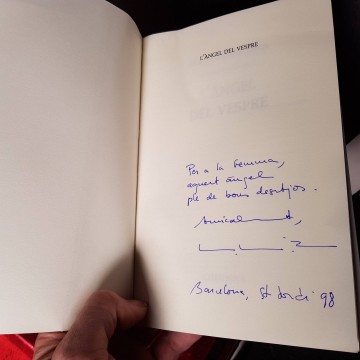 L'ÀNGEL DEL VESPRE
Per a la Gemma,
aquest àngel
ple de bons desitjos.
Amicalment,
Barcelona, St Jordi 98